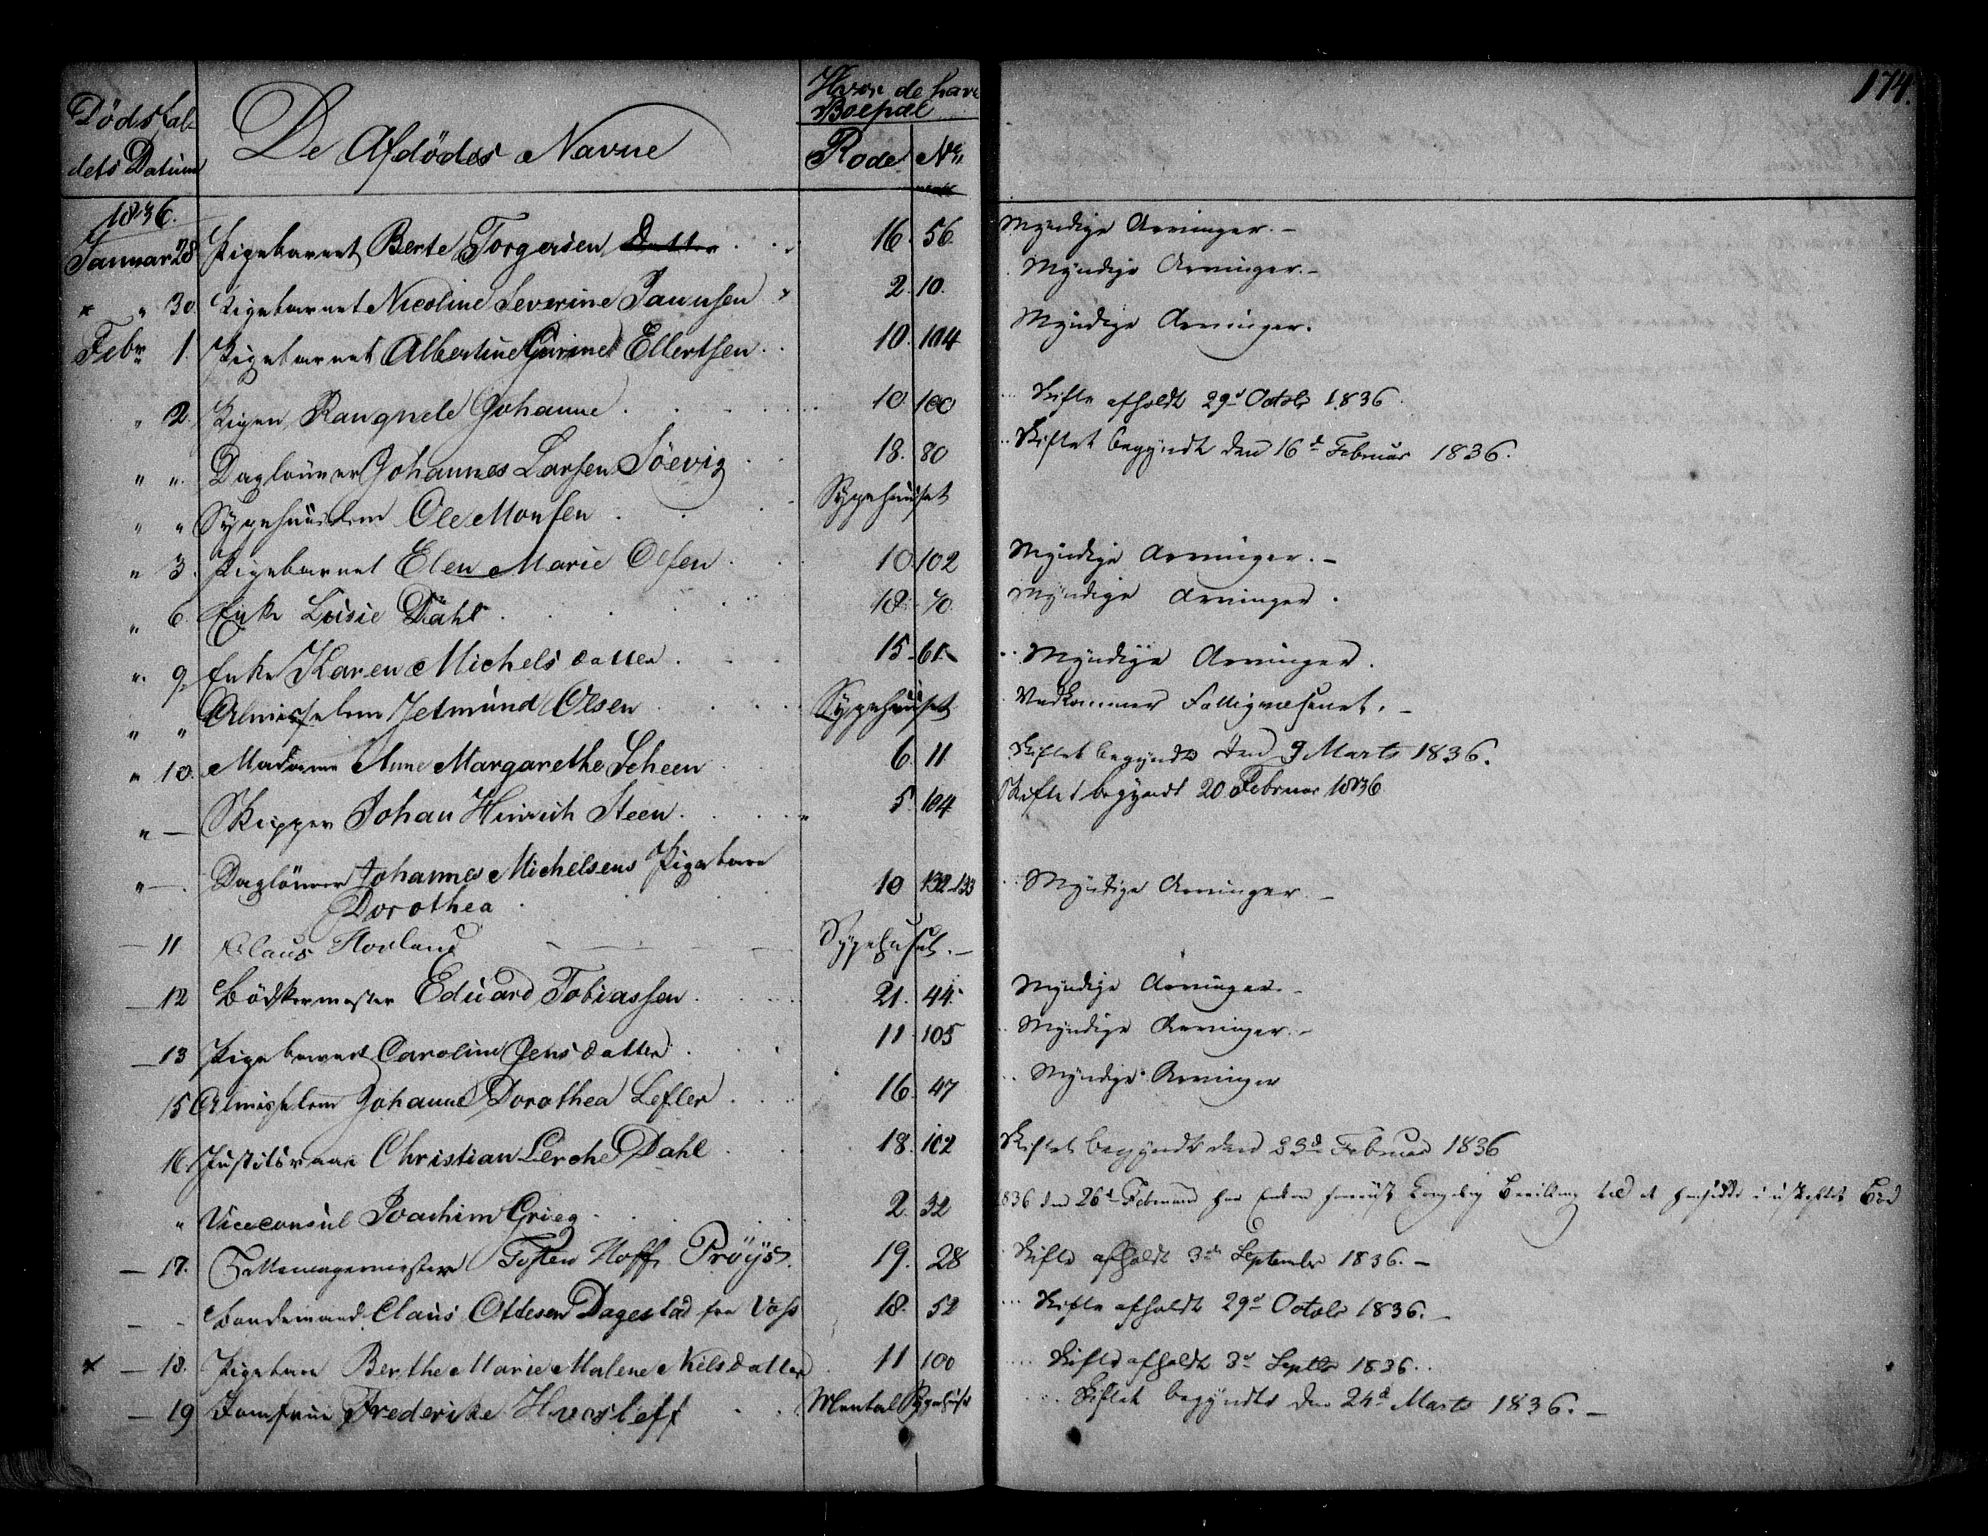 174.
Dödsfal-
dets Datum
De Afdödes Navne
Hvor de have
Boepæl
Rode No
1836.
Januar 28 Pigebarnet Berte Torgersen Datter 16. 56. Myndige Arvinger. -
" 30. Pigebarnet Nicoline Severine Jannsen 2. 10. Myndige Arvinger. -
Febr 1. Pigebarnet Albertine Ellertsen 10. 104 Myndige Arvinger.
" 2. Pigen Rangnele Johanne 10 100 Skifte afholdt 29d Octobr 1836.
" " Daglönner Johannes Larsen Söevig 18. 80 Skiftet begyndt den 16d Februar 1836.
" " Sygehuuslem Ole Monsen Sygehuuset
" 3. Pigebarnet Elen Marie Olsen 10. 102 Myndige Arvinger. -
" 6. Enke Lusie Dahl 18. 70. Myndige Arvinger.
" 9. Enke Karen Michelsdatter 15. 61. Myndige Arvinger.
" " Almisselem Jetmund Olsen Sygehuuset Vedkommer Fattigvæsenet. -
" 10. Madame Anne Margarethe Scheen 6. 11 Skiftet begyndt den 9 Marts 1836.
" — Skipper Johan Hinrich Steen 5. 104 Skiftet begyndt 20 Februar 1836
" —. Daglönner Johannes Michelsens Pigebarn
Dorothea 10 132.133 Myndige Arvinger. -
— 11 Claus Hovland Sygehuset. -
— 12 Bödkermester Eduard Tobiassen 21. 44. Myndige Arvinger. -
— 13 Pigebarnet Caroline Jensdatter 11. 105 Myndige Arvinger. -
15 Almisselem Johanne Dorothea Lefler 16. 47 Myndige Arvinger
16 Justitsraad Christian Lerche Dahl 18. 102 Skiftet begyndt den 23d Februar 1836
" Viceconsul Joachim Grieg 2. 32 1836 den 26d Februar har Enken Kongelig Bevilling til at hensidde i uskiftet Boe
— 17. Feldtmagermester Hoff Pröys. 19. 28 Skifte afholdt 3d September 1836. -
— " Bondemand Claus Ottesen Dagestad fra Voss 18. 52 Skifte afholdt 29d Octobr 1836. -
— 18. Pigebarn Berthe Marie Malene Nilsdatter 11 100 Skifte afholdt 3d Septbr 1836.
— 19 Jomfrue Frederike Hvosleff Mental Sygehuset Skiftet begyndte den 24d Marts 1836. -